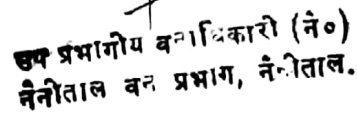 उप प्रभागीय वनाधिकारी (नै०)
नैनीताल वन प्रभाग, नैनीताल.